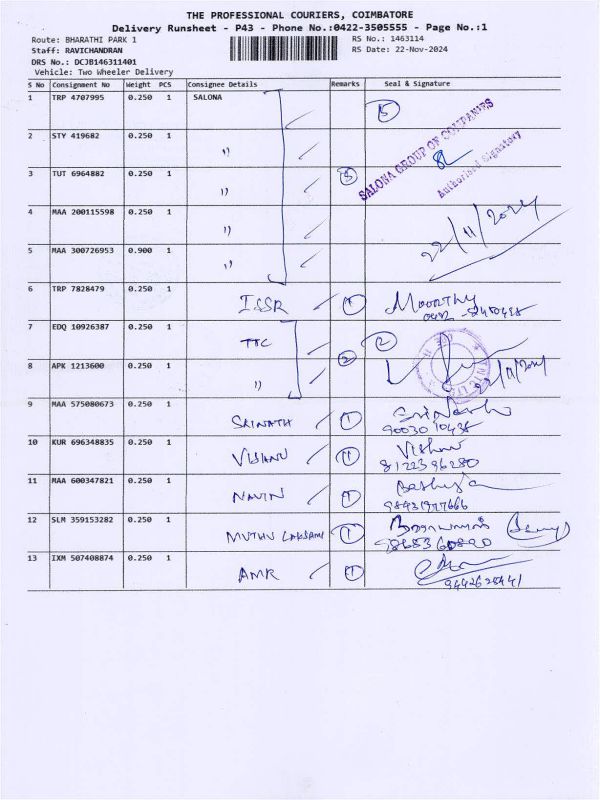 THE PROFESSIONAL COURIERS, COIMBATORE
Delivery Runsheet - P43 - Phone No.:0422-3505555 - Page No.:1
Route: BHARATHI PARK 1
RS No.: 1463114
Staff: RAVICHANDRAN
RS Date: 22-Nov-2024
DRS No.: DCJB146311401
Vehicle: Two Wheeler Delivery
S No Consignment No Weight PCS Consignee Details Remarks Seal & Signature
1 TRP 4707995 0.250 1 SALONA 5
SALONA GROUP OF COMPANIES
Authorised Signatory
2 STY 419682 0.250 1 "
3 TUT 6964882 0.250 1 " 5
4 MAA 200115598 0.250 1 " 22/11/2024
5 MAA 300726953 0.900 1 "
6 TRP 7828479 0.250 1 ISSR 1 MOORTHY
7 EDQ 10926387 0.250 1 TTC 2 2
8 APK 1213600 0.250 1 " 22/11/2024
9 MAA 575080673 0.250 1 SRINATH 1 Srinath
90030 10435
10 KUR 696348835 0.250 1 VISHNU 1 Vishnu
8122396280
11 MAA 600347821 0.250 1 NAVIN 1
12 SLM 359153282 0.250 1 MUTHU LAKSAMI 1
13 IXM 507408874 0.250 1 AMR 1